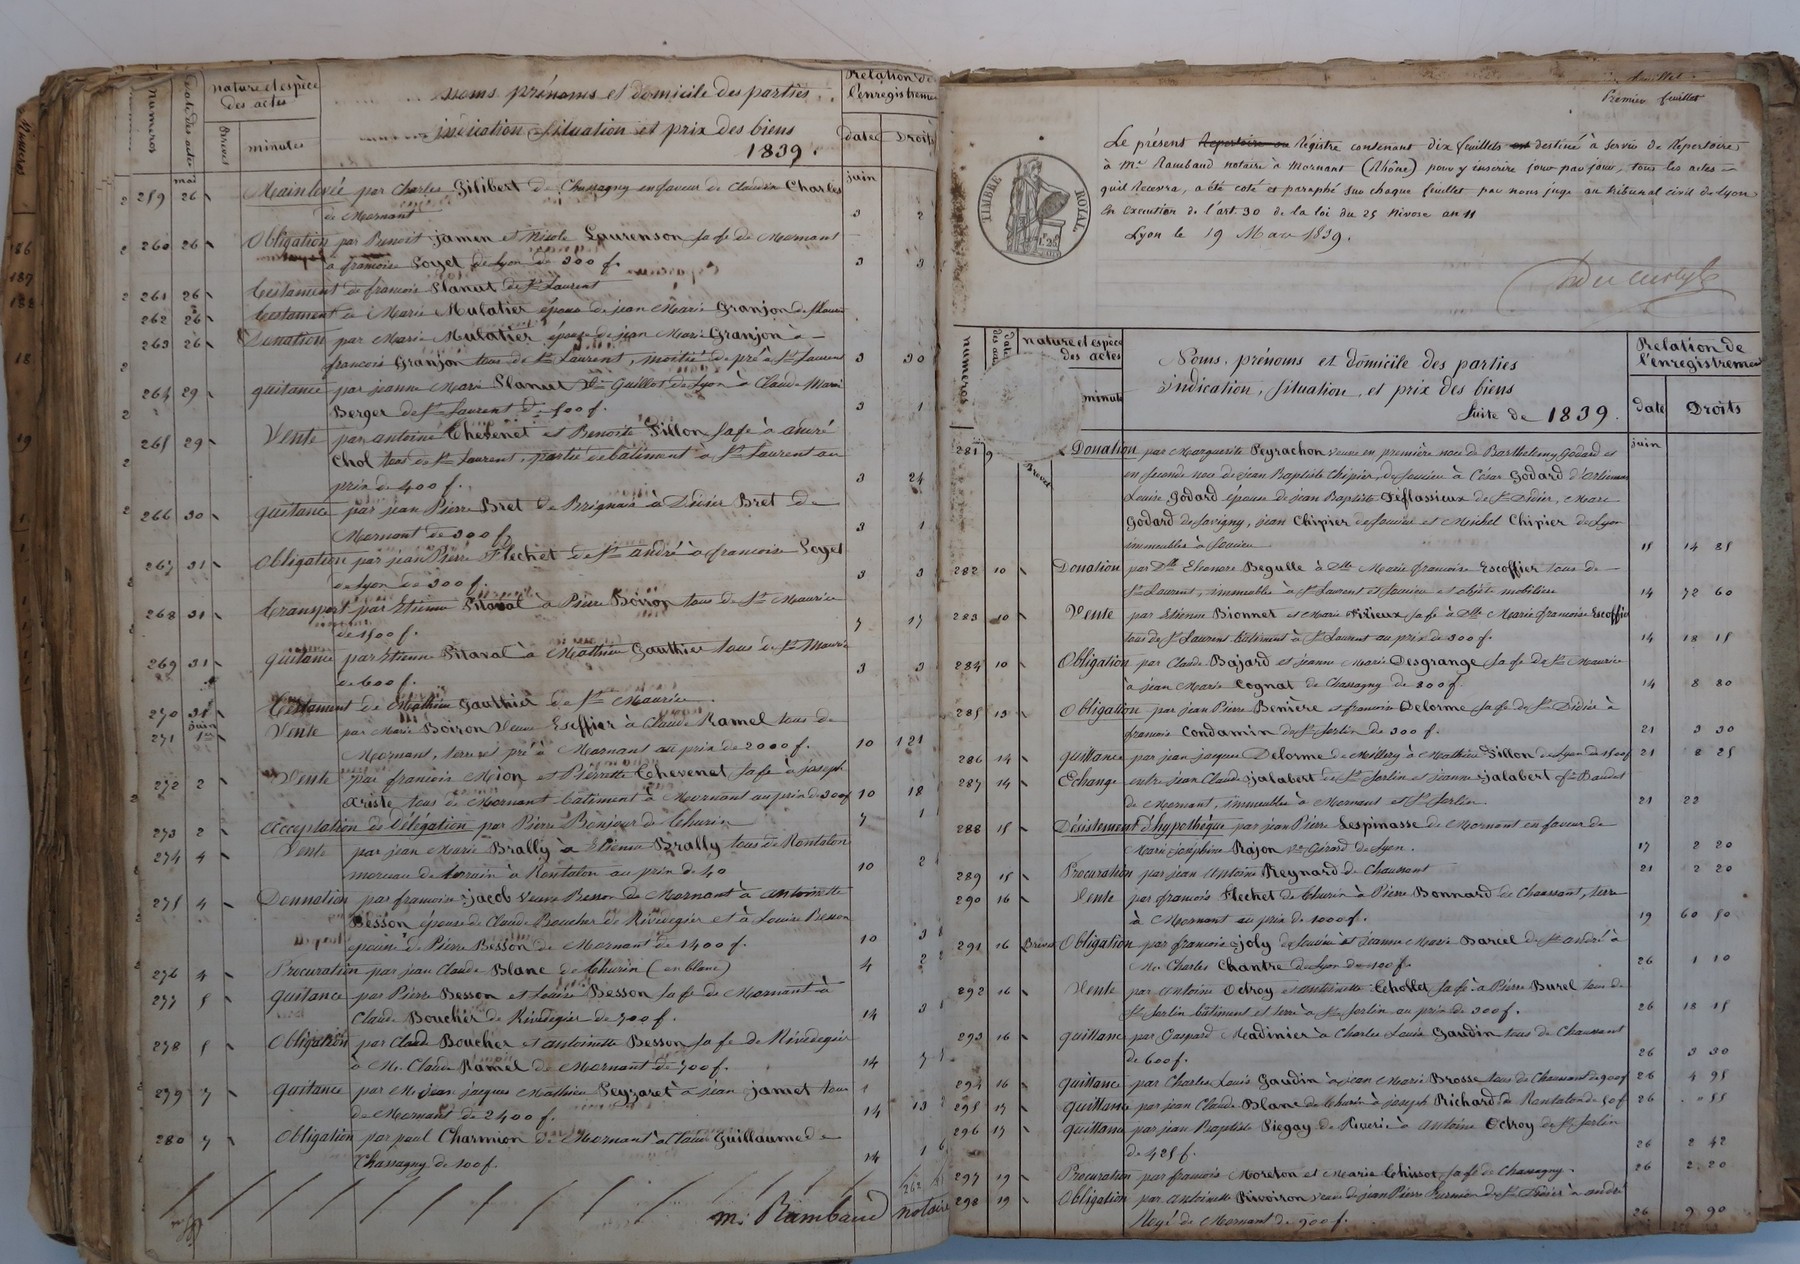 numeros
date des actes
nature et espèce des actes
Brevet
minutes
noms prénoms et domicile des parties
indication situation et prix des biens
1839.
Relation de l'enregistreme
date
Droits
mai
juin
259 26 Mainlevée par Charles Gilibert de Chassagny en faveur de Claudin Charles
de Mornant 3 2
260 26 Obligation par Benoit Jamen et Nicole Laurenson sa fe de Mornant
à francoise Poyet de Lyon de 300 f. 3 3
261 26 testament de francois Planut de St Laurent
262 26 testament de Marie Mulatier épouse de jean Marie Granjon de St Laurent
263 26 Donation par Marie Mulatier épouse de jean Marie Granjon à
francois Granjon tous de St Laurent, moitié de pré à St Laurent 3 30
264 29 quitance par jeanne Marie Planut Ve Guillot de Lyon à Claude Marie
Berger de St Laurent de 500 f. 3 1
265 29 Vente par antoine Chevenet et Benoite Fillon sa fe à andré
Chol tous de St Laurent, partie de batiment à St Laurent au
prix de 400 f. 3 24
266 30 quitance par jean Pierre Bret de Brignais à Didier Bret de
Mornant de 300 f 3 1
267 31 Obligation par jean Pierre Flechet de St andré à francoise Poyet
de Lyon de 300 f. 3 3
268 31 transport par Etienne Pitaval à Pierre Boiron tous de St Maurice
de 1500 f. 7 17
269 31 quitance par Etienne Pitaval à Mathieu Gauthier tous de St Maurice
de 600 f. 3 3
270 31 testament de Mathieu Gauthier de St Maurice
juin
271 1er Vente par Marie Boiron Veuve Escoffier à Claude Ramel tous de
Mornant, terre et pré à Mornant au prix de 2000 f. 10 121
272 2 Vente par francois Mion et Pierrette Chevenet sa fe à joseph
Ariste tous de Mornant batiment à Mornant au prix de 300f 10 18
273 2 acceptation de délégation par Pierre Bonjour de Thurin 7 1
274 4 Vente par jean Marie Brally à Etienne Brally tous de Rontalon
morceau de terrain à Rontalon au prix de 40 10 2
275 4 Donnation par francoise jacob veuve Besson de Mornant à antoinette
Besson épouse de Claude Boucher de Rivedegier et à Louise Besson
épouse de Pierre Besson de Mornant de 1400 f. 10 3
276 4 Procuration par jean Claude Blanc de Thurin (en blanc) 4 2
277 5 quitance par Pierre Besson et Louise Besson sa fe de Mornant à
Claude Boucher de Rivedegier de 700 f. 14 3
278 5 Obligation par Claude Boucher et antoinette Besson sa fe de Rivedegier
à Mr Claude Ramel de Mornant de 700 f. 14 7
279 7 quitance par Mr jean jacques Mathieu Peyzaret à jean jamet tous
de Mornant de 2400 f. 14 13
280 7 Obligation par paul Charmion de Mornant à Claude Guillaume de
Chassagny de 100 f. 14 1
Me Rambaud notaire
Premier feuillet
Le présent Repertoire ou Régistre contenant dix feuillets est destiné à servir de Répertoire
à Me Rambaud notaire à Mornant (Rhône) pour y inscrire jour par jour, tous les actes
qu'il recevra, a été coté et paraphé sur chaque feuillet par nous juge au tribunal civil de Lyon
En execution de l'art. 30 de la loi du 25 Nivose an 11
Lyon le 19 Mars 1839.
TIMBRE ROYAL
numeros
date des act
nature et espèce des actes
minute
Noms, prénoms et domicile des parties
indication, situation, et prix des biens
Suite de 1839.
Relation de l'enregistreme
date
Droits
Brevet
juin
281 9 Donation par Marguerite Peyrachon veuve en première noce de Barthelemy Godard et
en seconde noce de jean Baptiste Chipier, de Soucieu à César Godard d'Orlienas
Louise Godard épouse de jean Baptiste Déflassieux de St Didier, Marc
Godard de Savigny, jean Chipier de Soucieu et Michel Chipier de Lyon
immeubles à Soucieu 15 14 85
282 10 Donation par Dlle Eleonore Begulle à Dlle Marie francoise Escoffier tous de
St Laurent, immeuble à St Laurent et Soucieu et objets mobiliers 14 72 60
283 10 Vente par Etienne Bionnet et Marie Privieux sa fe à Dlle Marie francoise Escoffier
tous de St Laurent batiment à St Laurent au prix de 300 f. 14 18 15
284 10 Obligation par Claude Bajard et jeanne Marie Desgrange sa fe de St Maurice
à jean Marie Cognat de Chassagny de 800 f. 14 8 80
285 13 Obligation par jean Pierre Benière et francoise Delorme sa fe de St Didier à
francois Condamin de St Sorlin de 300 f. 21 3 30
286 14 quittance par jean jacques Delorme de Millery à Mathieu Fillon de Lyon de 1500f 21 8 25
287 14 Echange entre jean Claude jalabert de St Sorlin et jeanne jalabert fe Baudet
de Mornant, immeuble à Mornant et St Sorlin. 21 22
288 15 Désistement d'hypothèque par jean Pierre Lespinasse de Mornant en faveur de
Marie joséphine Rajon Ve Girard de Lyon. 17 2 20
289 15 Procuration par jean Antoine Reynard de Chaussant 21 2 20
290 16 Vente par francois Flechet de Thurin à Pierre Bonnard de Chaussant, terre
à Mornant au prix de 1000 f. 19 60 50
291 16 Brevet Obligation par francois joly de Soucieu et jeanne Marie Barcel de St andré à
Mr Charles Chantre de Lyon de 100 f. 26 1 10
292 16 Vente par Antoine Octroy et antoinette Chollet sa fe à Pierre Burel tous de
St Sorlin batiment et terre à St Sorlin au prix de 300 f. 26 18 15
293 16 quittance par Gaspard Madinier à Charles Louis Gaudin tous de Chaussant
de 600 f. 26 3 30
294 16 quittance par Charles Louis Gaudin à jean Marie Brosse tous de Chaussant de 900f 26 4 95
295 17 quittance par jean Claude Blanc de Thurin à joseph Richard de Rontalon de 50 f 26 . 055
296 17 quittance par jean Baptiste Piegay de Riverie à Antoine Octroy de St Sorlin
de 425 f. 26 2 42
297 19 Procuration par francois Moreton et Marie Chissot sa fe de Chassagny. 26 2 20
298 19 Obligation par Antoinette Rivoiron veuve de jean Pierre de St Didier à andré
Noyé de Mornant de 900 f. 26 9 90